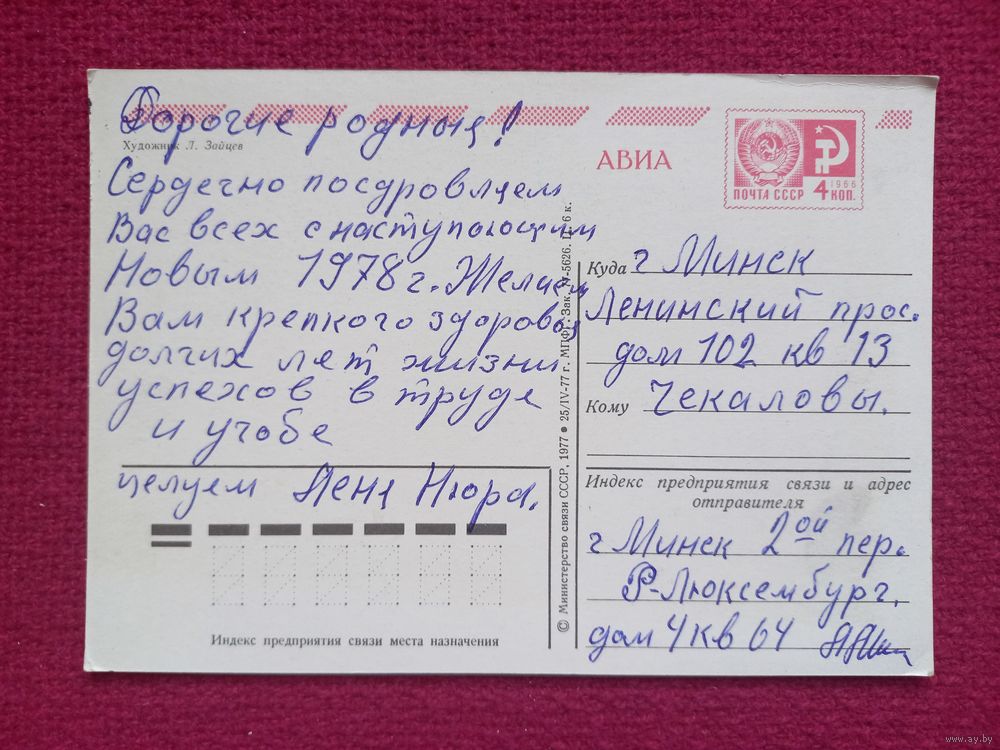 Дорогие родныя!
Художник Л. Зайцев
Сердечно поздровляем
Вас всех с наступающим
Новым 1978 г. Желаем
Вам крепкого здоровья
долгих лет жизни
успехов в труде
и учобе
целуем Лена Нюра.
Индекс предприятия связи места назначения
© Министерство связи СССР, 1977 • 25/IV-77 г. МПФГ. Зак. М-5626. Ц. 6 к.
АВИА
1966
ПОЧТА СССР 4 КОП.
Куда г Минск
Ленинский прос.
дом 102 кв 13
Кому Чекаловы.
Индекс предприятия связи и адрес
отправителя
г Минск 2ой пер.
Р-Люксембург.
дом 4 кв 64
www.ay.by